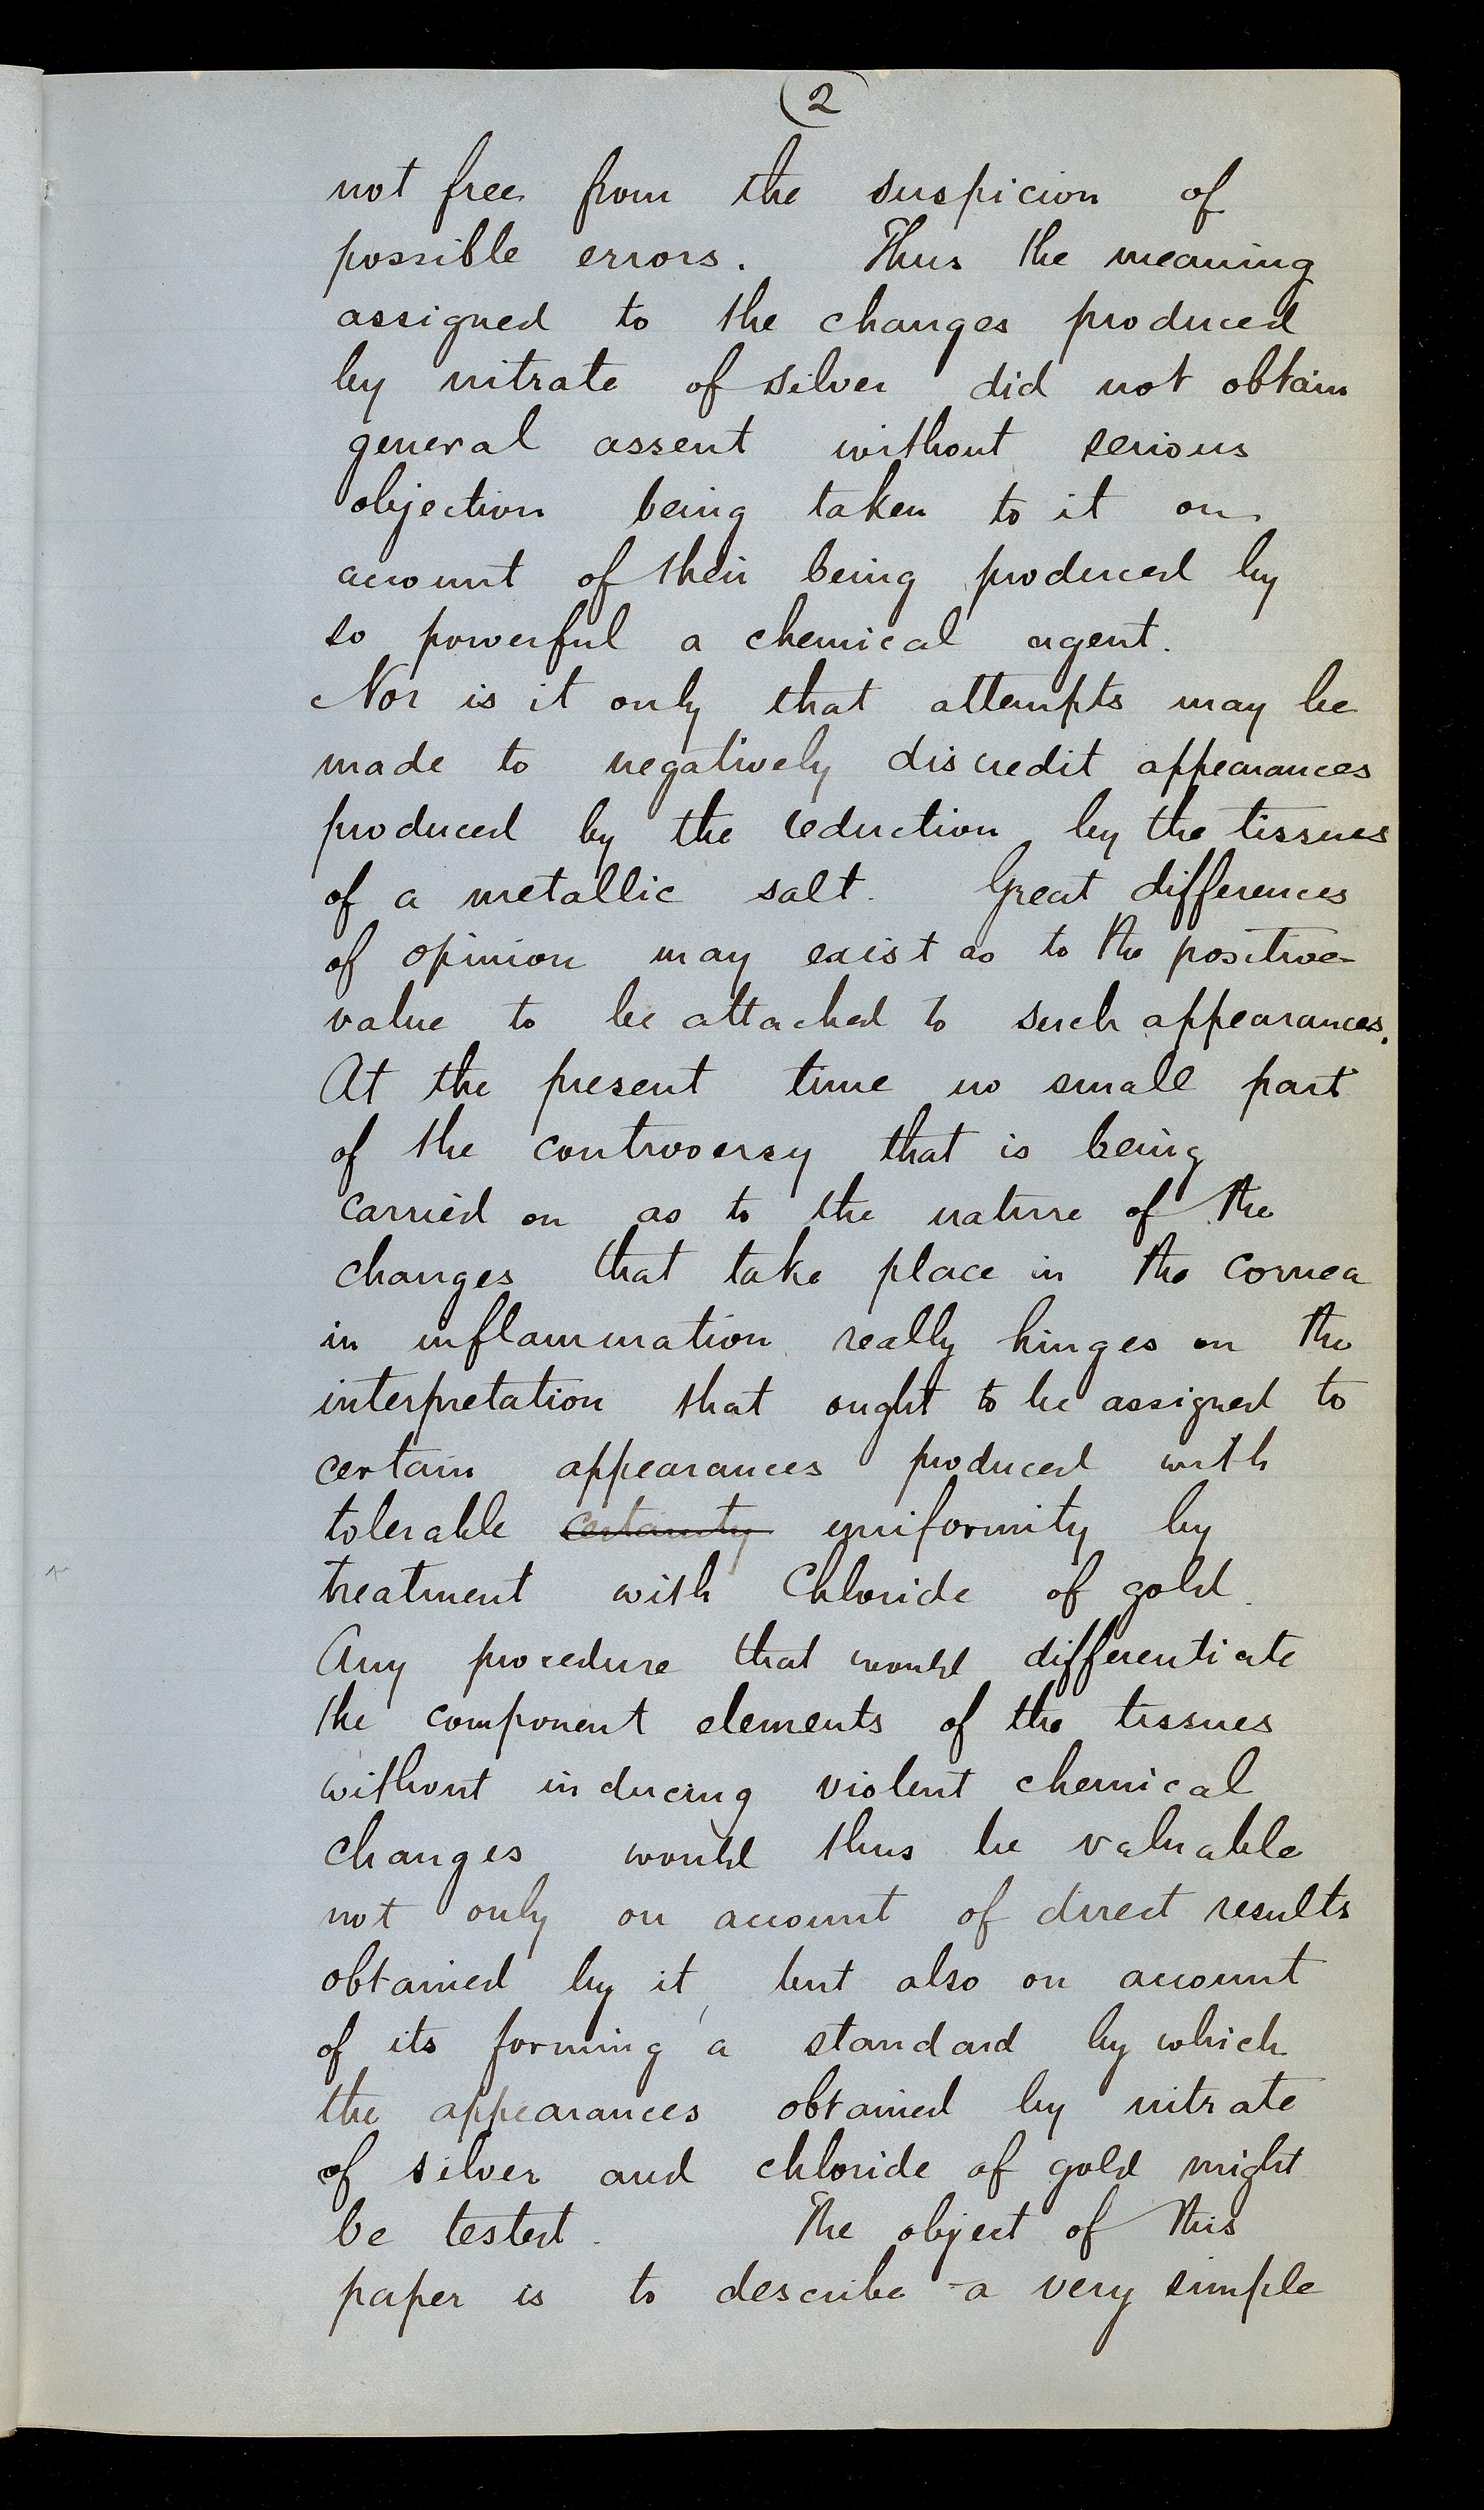 2
not free from the suspicion of
possible errors. Thus the meaning
assigned to the changes produced
by nitrate of silver did not obtain
general assent without serious
objection being taken to it on
account of their being produced by
so powerful a chemical agent.
Nor is it only that attempts may be
made to negatively discredit appearances
produced by the reduction by the tissues
of a metallic salt. Great differences
of opinion may exist as to the positive
value to be attached to such appearances.
At the present time no small part
of the controversy that is being
carried on as to the nature of the
changes that take place in the cornea
in inflammation really hinges on the
interpretation that ought to be assigned to
certain appearances produced with
tolerable certainty uniformity by
treatment with Chloride of gold.
Any procedure that would differentiate
the component elements of the tissues
without inducing violent chemical
changes would thus be valuable
not only on account of direct results
obtained by it, but also on account
of its forming a standard by which
the appearances obtained by nitrate
of silver and chloride of gold might
be tested. The object of this
paper is to describe a very simple